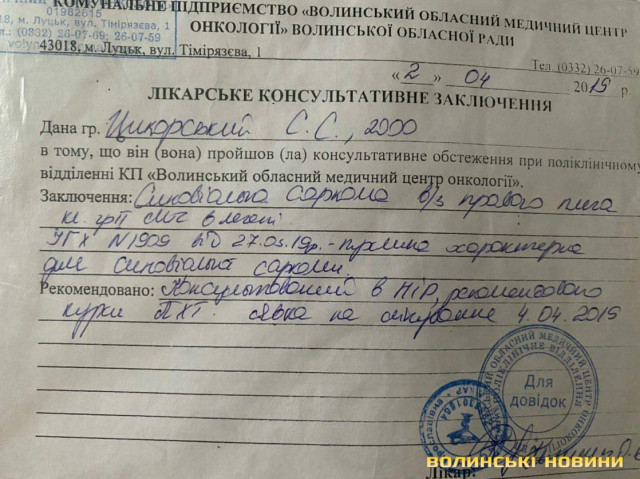 КОМУНАЛЬНЕ ПІДПРИЄМСТВО «ВОЛИНСЬКИЙ ОБЛАСНИЙ МЕДИЧНИЙ ЦЕНТР
ОНКОЛОГІЇ» ВОЛИНСЬКОЇ ОБЛАСНОЇ РАДИ
01982615
м. Луцьк, вул. Тімірязєва, 1
(0332) 26-07-69; 26-07-59
43018, м. Луцьк, вул. Тімірязєва, 1
Тел. (0332) 26-07-59
« 2 » 04 2019 р
ЛІКАРСЬКЕ КОНСУЛЬТАТИВНЕ ЗАКЛЮЧЕННЯ
Дана гр. Цикорський С. С., 2000
в тому, що він (вона) пройшов (ла) консультативне обстеження при поліклінічному
відділенні КП «Волинський обласний медичний центр онкології».
Заключення: Синовіальна саркома в/з правого плеча
ІГХ N 1909 від 27.03.19р. - пухлина характерна
для синовіальної саркоми.
Рекомендовано: Консультований в НІР, рекомендовано
курси ПХТ. явка на лікування 4.04.2019
ОБЛАСНИЙ МЕДИЧНИЙ ЦЕНТР ОНКОЛОГІЇ
ПОЛІКЛІНІЧНЕ ВІДДІЛЕННЯ
Для
довідок
Лікар:
ВОЛИНСЬКІ НОВИНИ